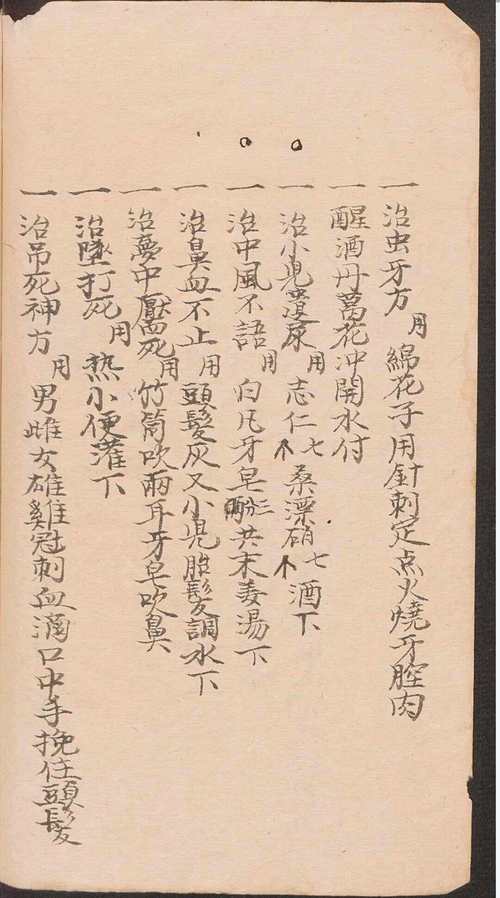 一 治虫牙方用綿花子用針刺定点火燒牙腔肉
一 醒酒丹萬花冲開水付
一 治小児遺尿用志仁七个桑漂硝七个酒下
一 治中風不語用白凡牙皂三分共末姜湯下
一 治鼻血不止用頭髮灰又小児胎髮調水下
一 治夢中魘死用竹筒吹兩耳牙皂吹鼻
一 治墜打死用热小便灌下
一 治吊死神方用男雌女雄雞冠刺血滴口中手挽住頭髮